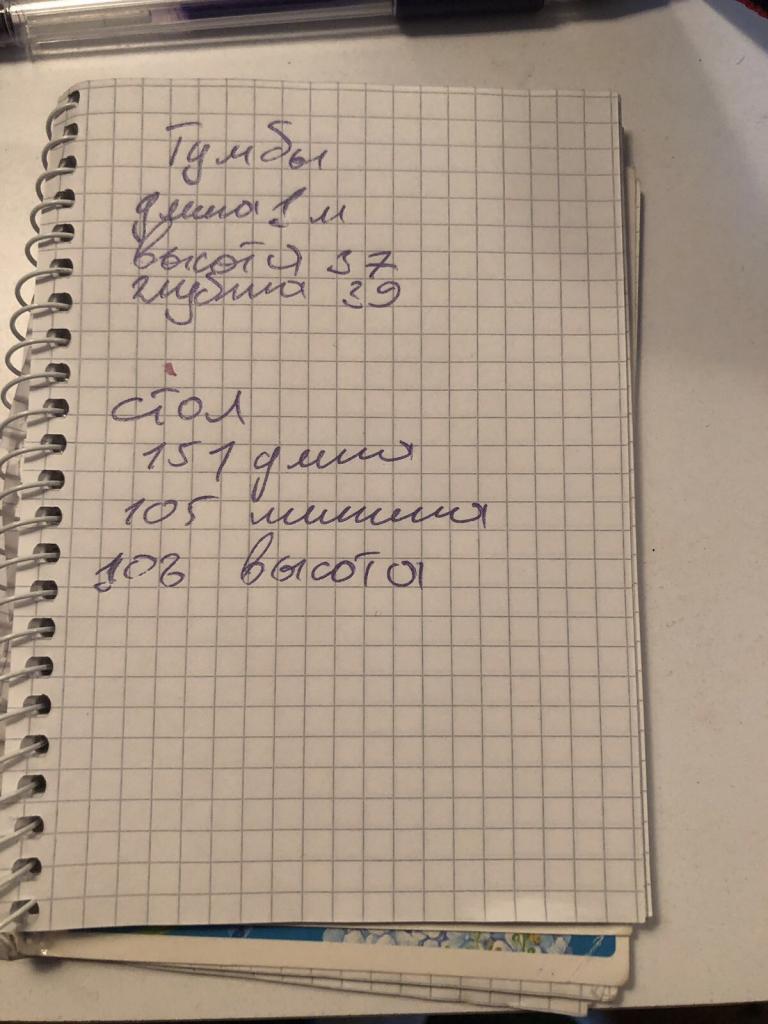 Тумбы
длина 1 м
высота 37
глубина 39
стол
151 длина
105 ширина
103 высота